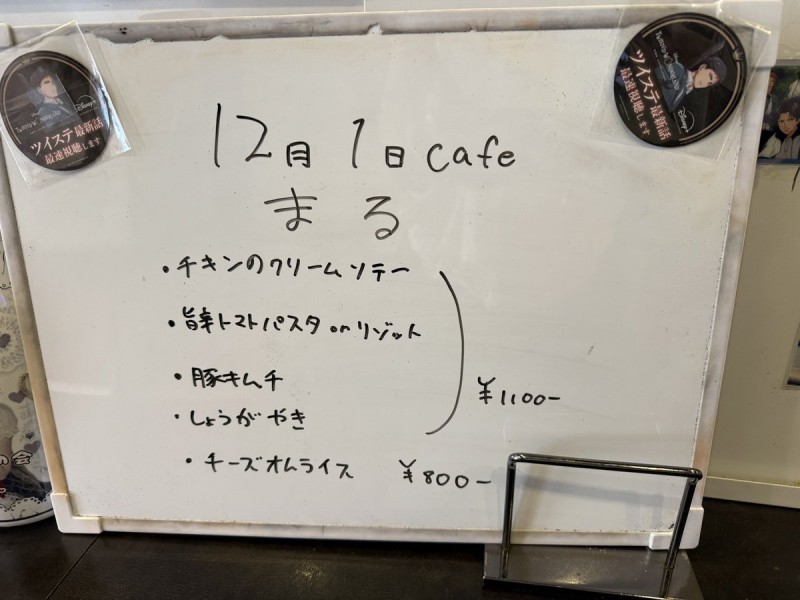 12月1日 cafe
まる
・チキンのクリームソテー
・旨辛トマトパスタ or リゾット
・豚キムチ
・しょうがやき
¥1100-
・チーズオムライス ¥800-
ツイステ最新話
最速視聴します
Disney+
ツイステ最新話
最速視聴します
Disney+
の会